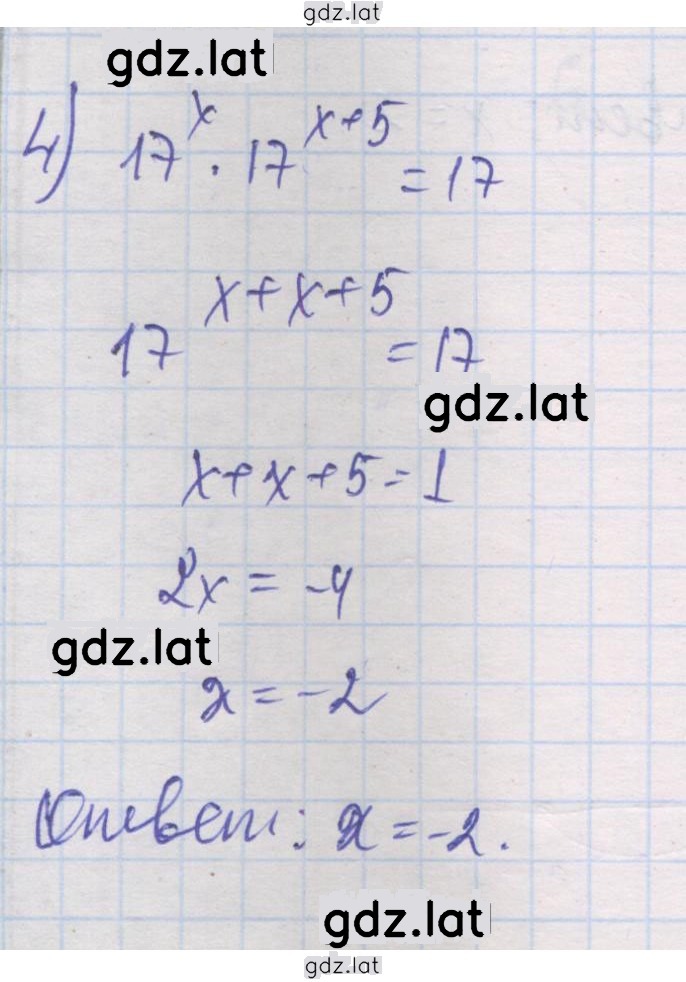 gdz.lat
gdz.lat
4) 17^x · 17^(x+5) = 17
17^(x+x+5) = 17
gdz.lat
x+x+5=1
2x = -4
gdz.lat
x = -2
Ответ: x = -2.
gdz.lat
gdz.lat